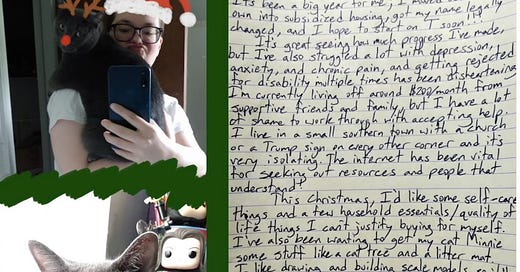 It's been a big year for me, I moved
own into subsidized housing, got my name legally
changed, and I hope to start on T soon!!!
It's great seeing how much progress I've made,
but I've also struggled a lot with depression,
anxiety, and chronic pain, and getting rejected
for disability multiple times has been disheartening
I'm currently living off around $200/month from
supportive friends and family, but I have a lot
of shame to work through with accepting help.
I live in a small southern town with a church
or a Trump sign on every other corner and it's
very isolating. The internet has been vital
for seeking out resources and people that
understand
This Christmas, I'd like some self-care
things and a few household essentials/quality of
life things I can't justify buying for myself.
I've also been wanting to get my cat Minnie
some stuff like a cat tree and a litter mat.
I like drawing and building scale models